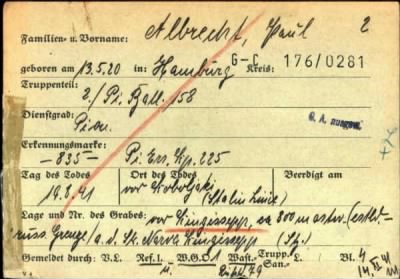 Familien- u. Vorname: Albrecht, Paul 2
geboren am 13.5.20 in: Hamburg Kreis: G-C 176/0281
Truppenteil:
2./Pi. Batl. 158
Dienstgrad:
Pion. G. A. ausgew.
Erkennungsmarke:
-835- Pi. Ers. Kp. 225
Tag des Todes Ort des Todes Beerdigt am
19.8.41 vor (Stalin Linie)
Lage und Nr. des Grabes: vor Kingissepp, ca 800 m ostw. (estld.
russ Grenze/a.d. Str. Narwa Kingissepp
Gemeldet durch: V.L. Ref. I W.G.O. 1 Wast. Trupp. San. Bl. 4